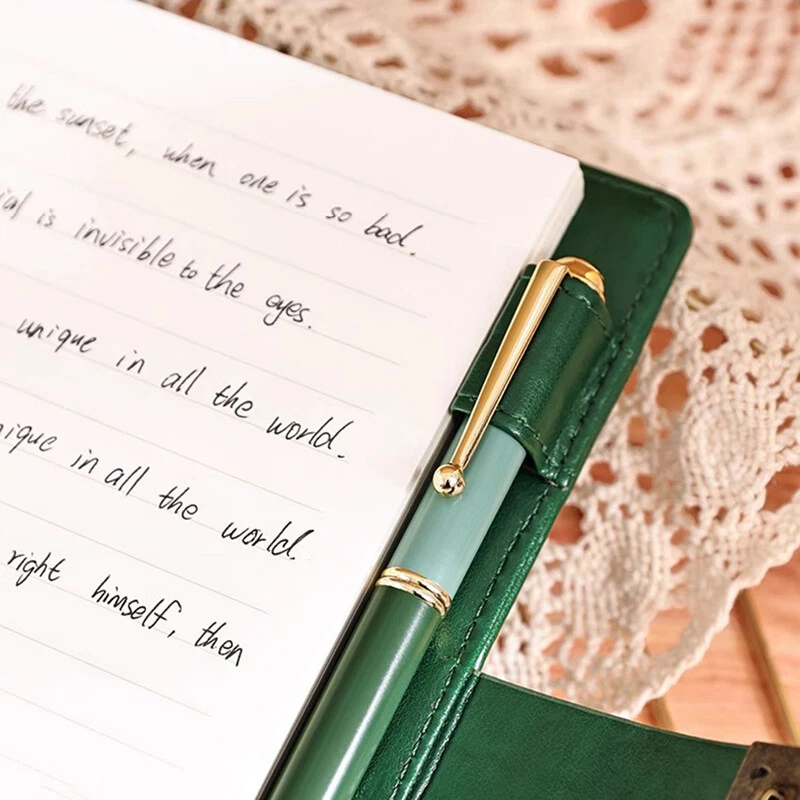 the sunset, when one is so bad.
ial is invisible to the eyes.
unique in all the world.
nique in all the world.
right himself, then